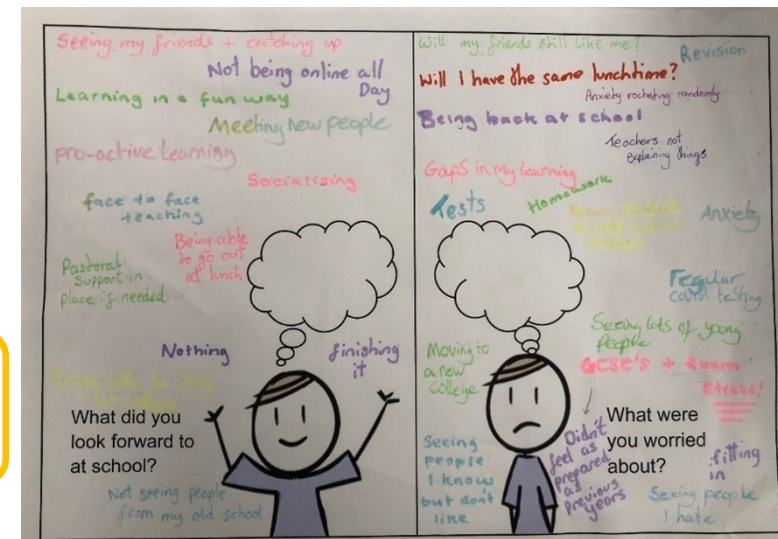 Seeing my friends + catching up
Not being online all
Day
Learning in a fun way
Meeting new people
pro-active learning
Socialising
face to face
teaching
Being able
to go out
at lunch
Pastoral
support in
place if needed
Nothing
finishing
it
What did you
look forward to
at school?
Not seeing people
from my old school
Will my friends still like me?
Revision
Will I have the same lunchtime?
Anxiety rocketing randomly
Being back at school
Teachers not
explaining things
Gaps in my learning
Homework
Tests
Many
Anxiety
Regular
covid testing
Seeing lots of young
People
Moving to
a new
college
GCSE's + Exam
Stress!
What were
you worried
about?
Didn't
feel as
prepared
as
previous
years
fitting
in
Seeing
people
I know
but don't
like
Seeing people
I hate